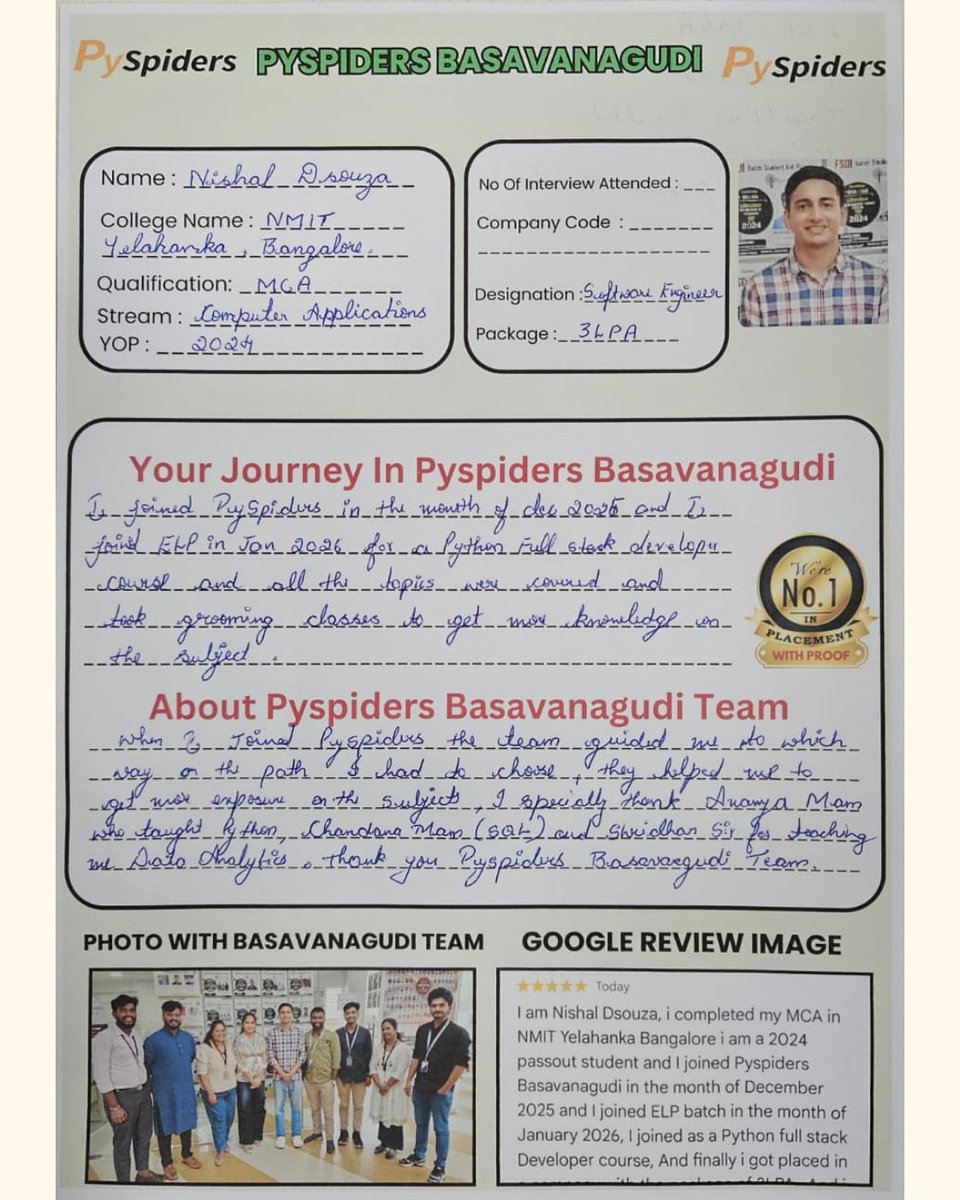 PySpiders PYSPIDERS BASAVANAGUDI PySpiders
Name : Nishal Dsouza
College Name : NMIT
Yelahanka , Bangalore.
Qualification: MCA
Stream : Computer Applications
YOP : 2024
No Of Interview Attended :
Company Code :
Designation : Software Engineer
Package : 3LPA
FSDI
2024
2024
Your Journey In Pyspiders Basavanagudi
I joined PySpiders in the month of dec 2025 and I
joined ELP in Jan 2026 for a Python Full stack developer
course and all the topics were covered and
took grooming classes to get more knowledge on
the subject .
We're
No.1
IN
PLACEMENT
WITH PROOF
About Pyspiders Basavanagudi Team
When I Joined Pyspiders the team guided me to which
way or the path I had to choose, they helped me to
get more exposure on the subjects, I specially thank Ananya Mam
who taught Python, Chandana Mam (SQL) and Shridhar Sir for teaching
me Data Analytics. Thank you Pyspiders Basavangudi Team.
PHOTO WITH BASAVANAGUDI TEAM
GOOGLE REVIEW IMAGE
Today
I am Nishal Dsouza, i completed my MCA in
NMIT Yelahanka Bangalore i am a 2024
passout student and I joined Pyspiders
Basavanagudi in the month of December
2025 and I joined ELP batch in the month of
January 2026, I joined as a Python full stack
Developer course, And finally i got placed in